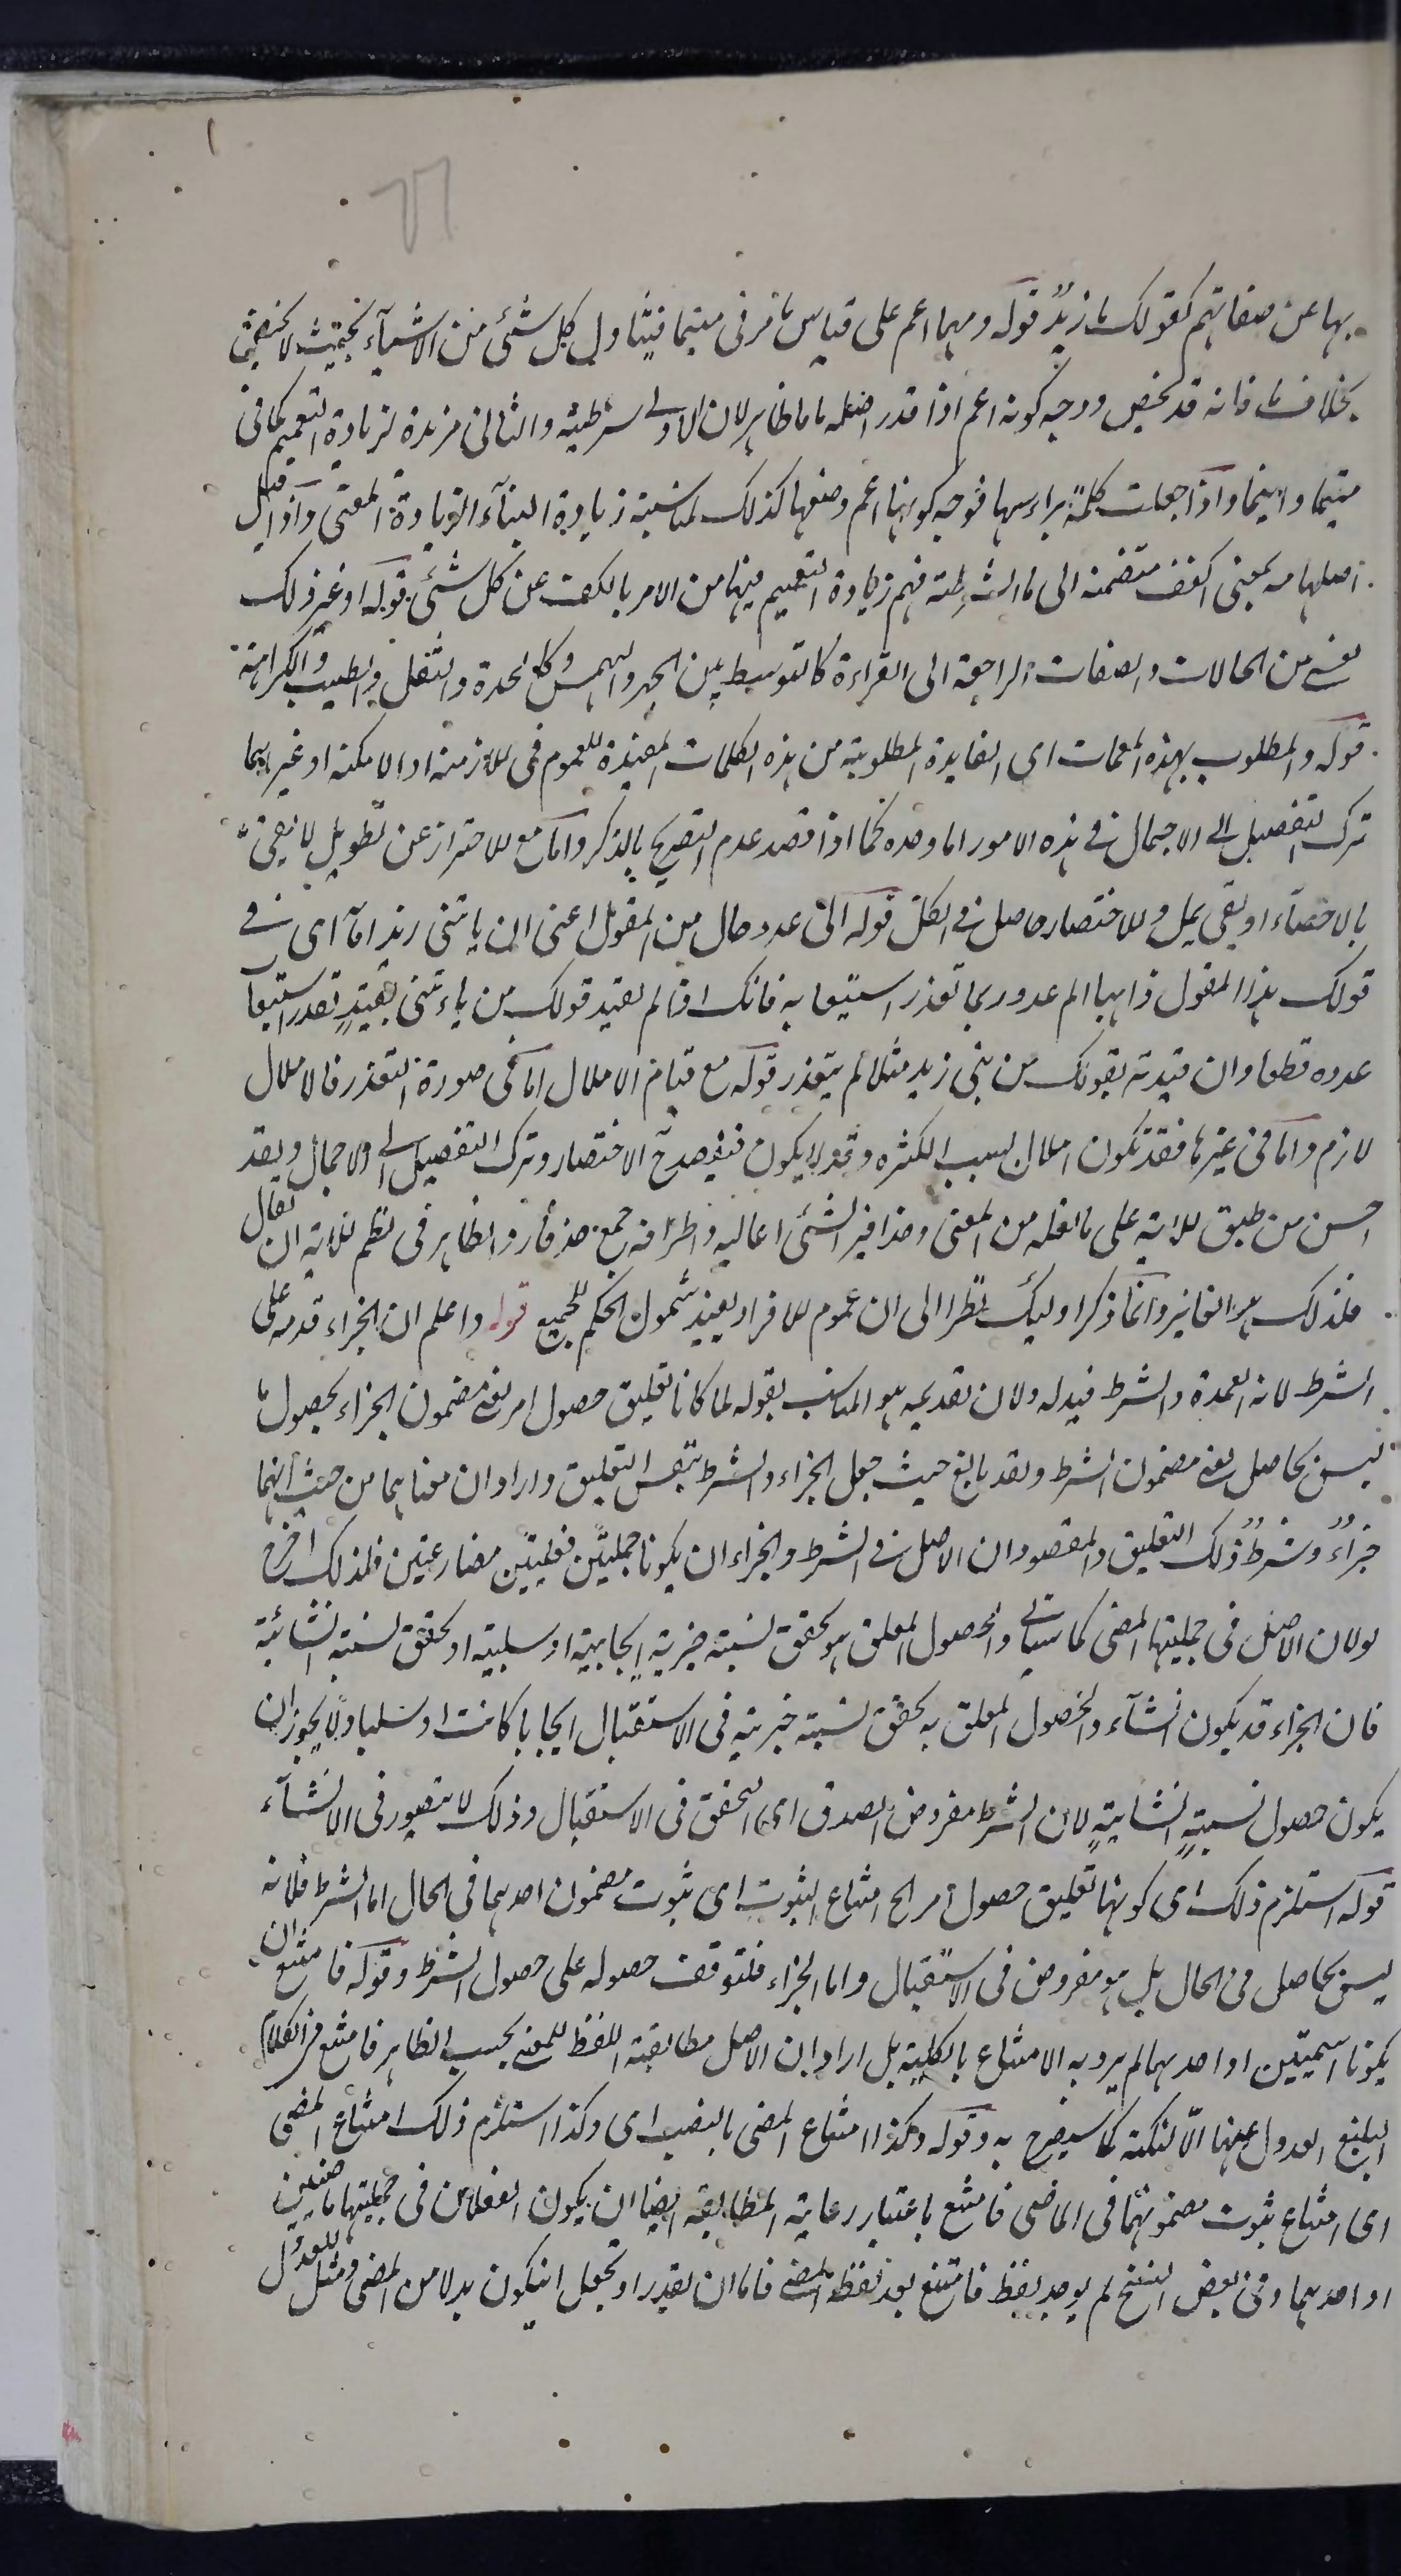 بها عن صفاتهم كقولك ما زيدٌ قوله ومهما اعم على قياس ما مر فى متيما فيتناول كل شئ من الاشيآء بحيث لا يختص
بخلاف ما فانه قد يخص ووجه كونه اعم اذا قدر اصله ماما ظاهر لان الاولى شرطية والثانى مزيدة لزيادة التعميم كما فى
متيما واينما واذا جعلت كلمةً براسها فوجه كونها اعم وضعها كذلك لمناسبة زيادة البنآء الزيادة المعنى واذا قيل
اصلها مه بمعنى اكفف متضمنه الى ما الشرطية فهم زيادة التعميم فيها من الامر بالكف عن كل شئ قوله او غير ذلك
يعنى من الحالات والصفات الراجعة الى القراءة كالتوسط بين الجهر والهمس وكالحدة والثقل والطيب والكراهة
قوله والمطلوب بهذه المعمات اى الفايدة المطلوبة من هذه الكلمات المفيدة للعموم فى الازمنة او الامكنة او غيرهما
ترك التفصيل الى الاجمال فى هذه الامور اما وحده كما اذا قصد عدم التصريح بالذكر واما مع الاحتراز عن تطويل لا يفى
بالاحصآء او يفى يمل والاختصار حاصل فى الكل قوله الى عدد حال من المقول اعنى من ياتنى زيد اما اى فى
قولك هذا المقول ذاهبا الى عدد ربما تعذر استيعابه فانك اذا لم تقيد قولك من ياءتنى بقيدٍ تعذر استيعاب
عدده قطعا وان قيدته بقولك من بنى زيد مثلا لم يتعذر قوله مع قيام الاملال اما فى صورة التعذر فالاملال
لازم واما فى غيرها فقد تكون املال بسبب الكثرة وقد لا يكون فيقصد ح الاختصار وترك التفصيل الى الاجمال ولقد
احسن من طبق الاية على ما نقله من المعنى وحذافير الشئ اعاليه واطرافه جمع حذفار والظاهر فى نظم الاية ان يقال
فاولئك هم الفائزون وانما ذكر اولئك نظرا الى ان عموم الافراد يفيد شمول الحكم للجميع قوله واعلم ان الجزاء قدمه على
الشرط لانه العمدة والشرط قيد له ولان تقديمه هو المناسب بقوله لما كانا تعليق حصول امر يعنى مضمون الجزاء بحصول ما
ليس بحاصل يعنى مضمون الشرط ولقد بالغ حيث جعل الجزاء والشرط نفس التعليق واراد ان معناهما من حيث انهما
جزاءٌ وشرطٌ ذلك التعليق والمقصود ان الاصل فى الشرط والجزاء ان يكونا جمليتين فعليتين مضارعتين فلذلك اخرج
لولان الاصل فى جمليتها المضى كما سياتى والحصول المعلق هو تحقق نسبة خبرية ايجابية او سلبية او تحقق نسبة انشائية
فان الجزاء قد يكون انشآء والحصول المعلق به تحقق نسبة خبرية فى الاستقبال ايجابا كانت او سلبا ولا يجوز ان
يكون حصول نسبةٍ انشايةٍ لان الشرط مفروض الصدق اى التحقق فى الاستقبال وذلك لا يتصور فى الانشآء
قوله استلزم ذلك اى كونهما تعليق حصول امر الخ امتناع الثبوت اى ثبوت مضمون احدهما فى الحال اما الشرط فلانه
ليس بحاصل فى الحال بل هو مفروض فى الاستقبال واما الجزاء فلتوقف حصوله على حصول الشرط وقوله فامتنع ان
يكونا اسميتين او احدهما لم يرد به الامتناع بالكلية بل اراد ان الاصل مطابقة اللفظ للمعنى بحسب الظاهر فامتنع فى الكلام
البليغ العدول عنها الّا لنكتة كما سيصرح به وقوله وكذا امتناع المضى بالنصب اى وكذا استلزم ذلك امتناع المضى
اى امتناع ثبوت مضمونهما فى الماضى فامتنع باعتبار رعاية المطابقة ايضا ان يكون الفعلان فى جمليتها ماضيين
او احدهما وفى بعض النسخ لم يوجد لفظ فامتنع بعد لفظ المضى فاما ان يقدر او يجعل ان يكون بدلا من المضى ومثل للعدول